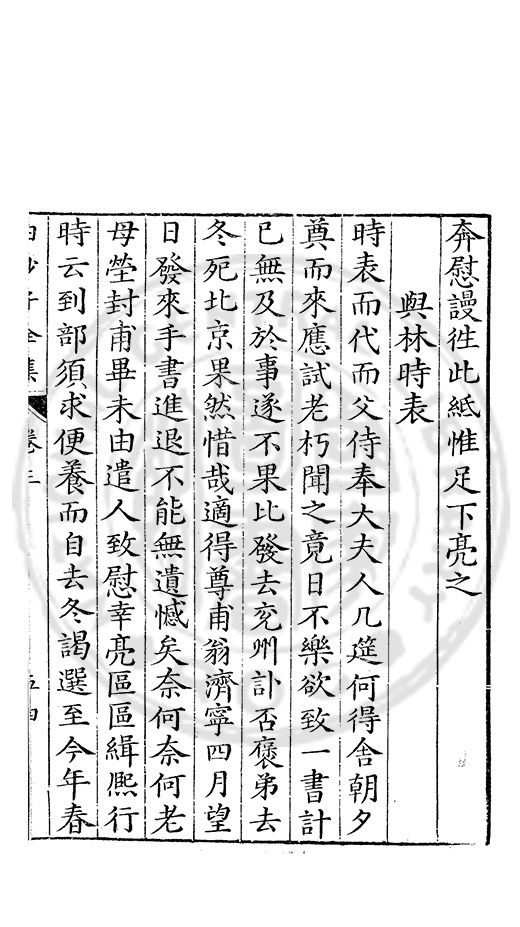 奔慰謾徃此紙惟足下亮之
與林時表
時表而代而父侍奉大夫人几筵何得舍朝夕
奠而來應試老朽聞之竟日不樂欲致一書計
已無及於事遂不果比發去兖州訃否褒弟去
冬死北京果然惜哉適得尊甫翁濟寧四月望
日發來手書進退不能無遺憾矣奈何奈何老
母塋封甫畢未由遣人致慰幸亮區區緝熈行
時云到部須求便養而自去冬謁選至今年春
白沙子全集 卷三